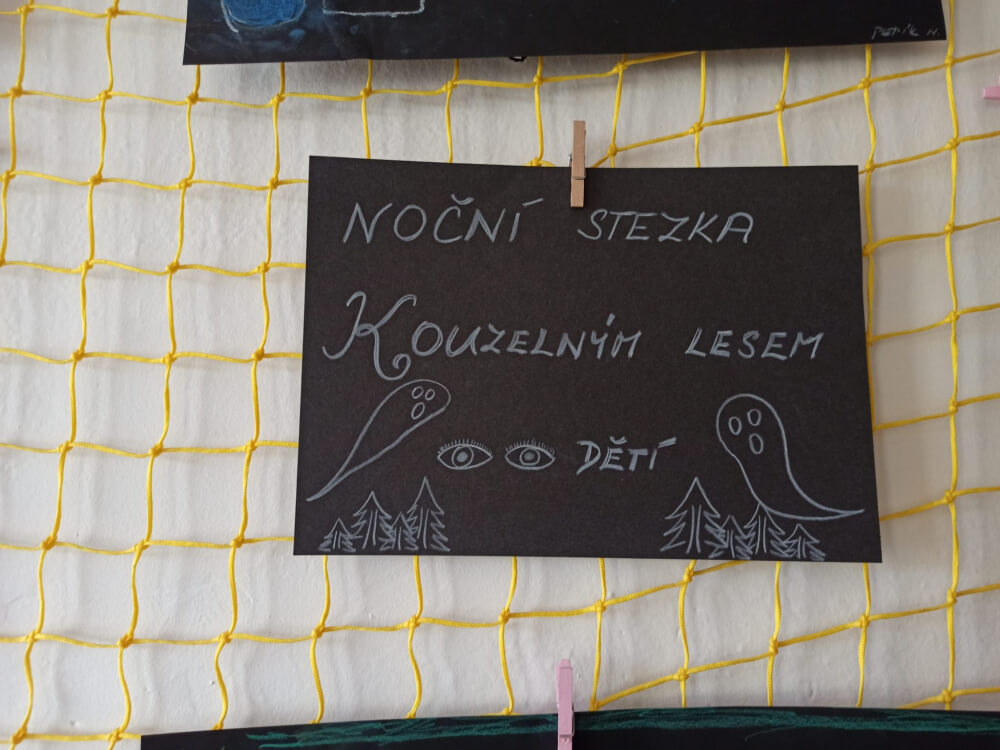 PEPÍK H.
NOČNÍ STEZKA
KOUZELNÝM LESEM
DĚTÍ